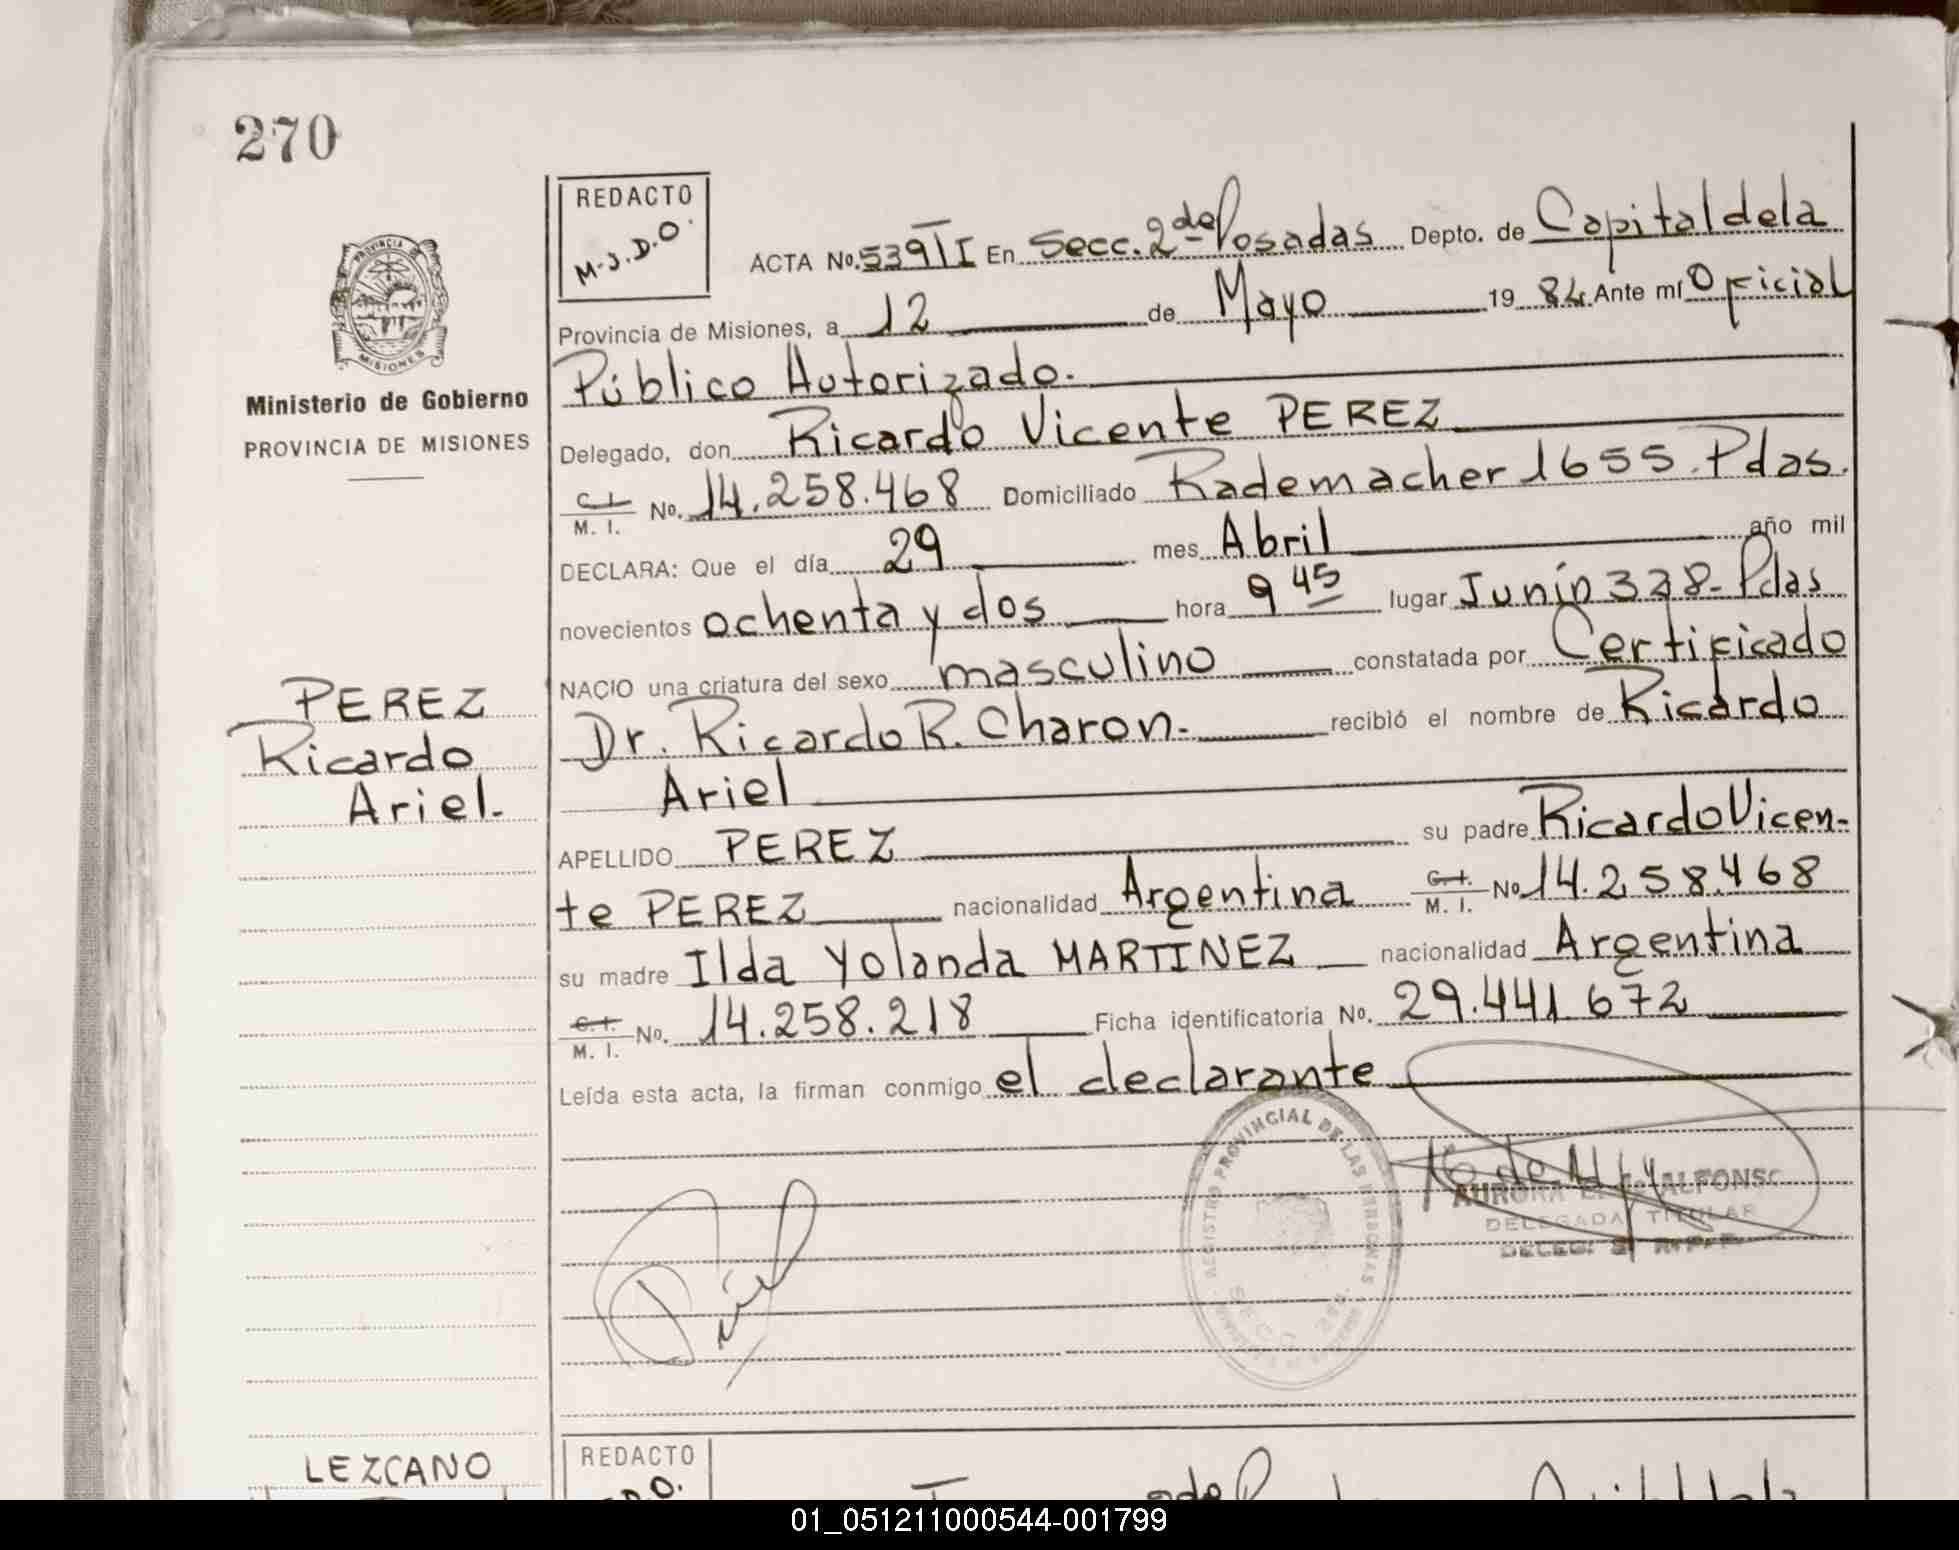 270
REDACTO
M.J.D.O.
ACTA No. 539 TI En Secc. 2da de Posadas Depto. de Capital de la
Provincia de Misiones, a 12 de Mayo 19 84. Ante mí Oficial
Público Autorizado.
Delegado, don Ricardo Vicente PEREZ
C.I. M. I. No. 14.258.468 Domiciliado Rademacher 1655. Pdas.
DECLARA: Que el día 29 mes Abril año mil
novecientos ochenta y dos hora 9 45 lugar Junín 328- Pdas
NACIO una criatura del sexo masculino constatada por Certificado
Dr. Ricardo R. Charon. recibió el nombre de Ricardo
Ariel
APELLIDO PEREZ su padre Ricardo Vicen-
te PEREZ nacionalidad Argentina C.I. M. I. No 14.258.468
su madre Ilda Yolanda MARTINEZ nacionalidad Argentina
C.I. M. I. No. 14.258.218 Ficha identificatoria No. 29.441.672
Leída esta acta, la firman conmigo el declarante
PROVINCIA
MISIONES
Ministerio de Gobierno
PROVINCIA DE MISIONES
PEREZ
Ricardo
Ariel.
REGISTRO PROVINCIAL DE LAS PERSONAS
SECC. 2da.
AURORA ALFONSO
DELEGADA TITULAR
LEZCANO
REDACTO
01_051211000544-001799